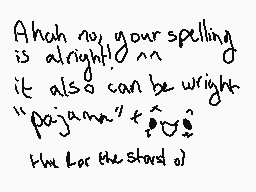 Ahah no, your spelling
is alright! ^^
it also can be wright
"pajama" +
thx for the stars! o)